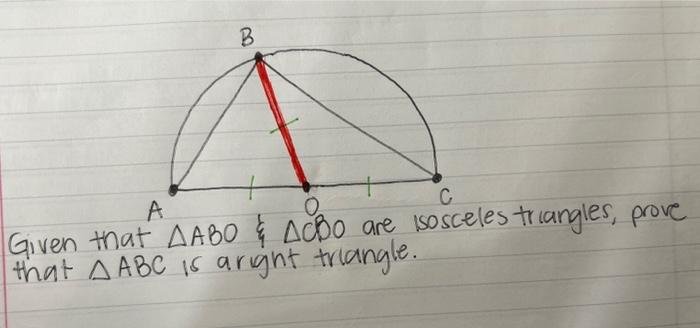 B
A
O
C
Given that △ABO & △CBO are isosceles triangles, prove
that △ABC is a right triangle.